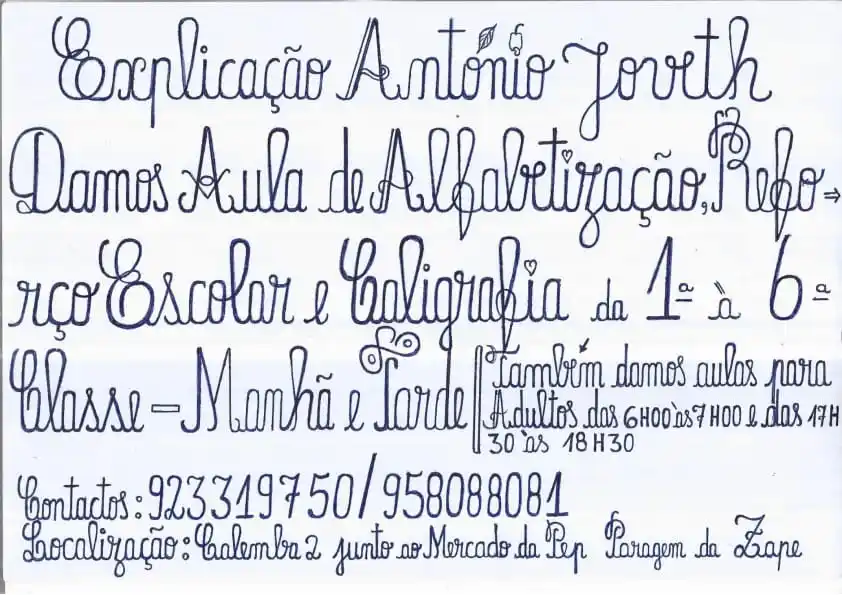 Explicação António Joveth
Damos Aula de Alfabetização, Refo⇒
rço Escolar e Caligrafia da 1ª à 6ª
Classe - Manhã e Tarde
Também damos aulas para
Adultos das 6H00 às 7H00 e das 17H
30 às 18H30
Contactos: 923319750/958088081
Localização: Calemba 2 junto ao Mercado da Pep Paragem da Zape